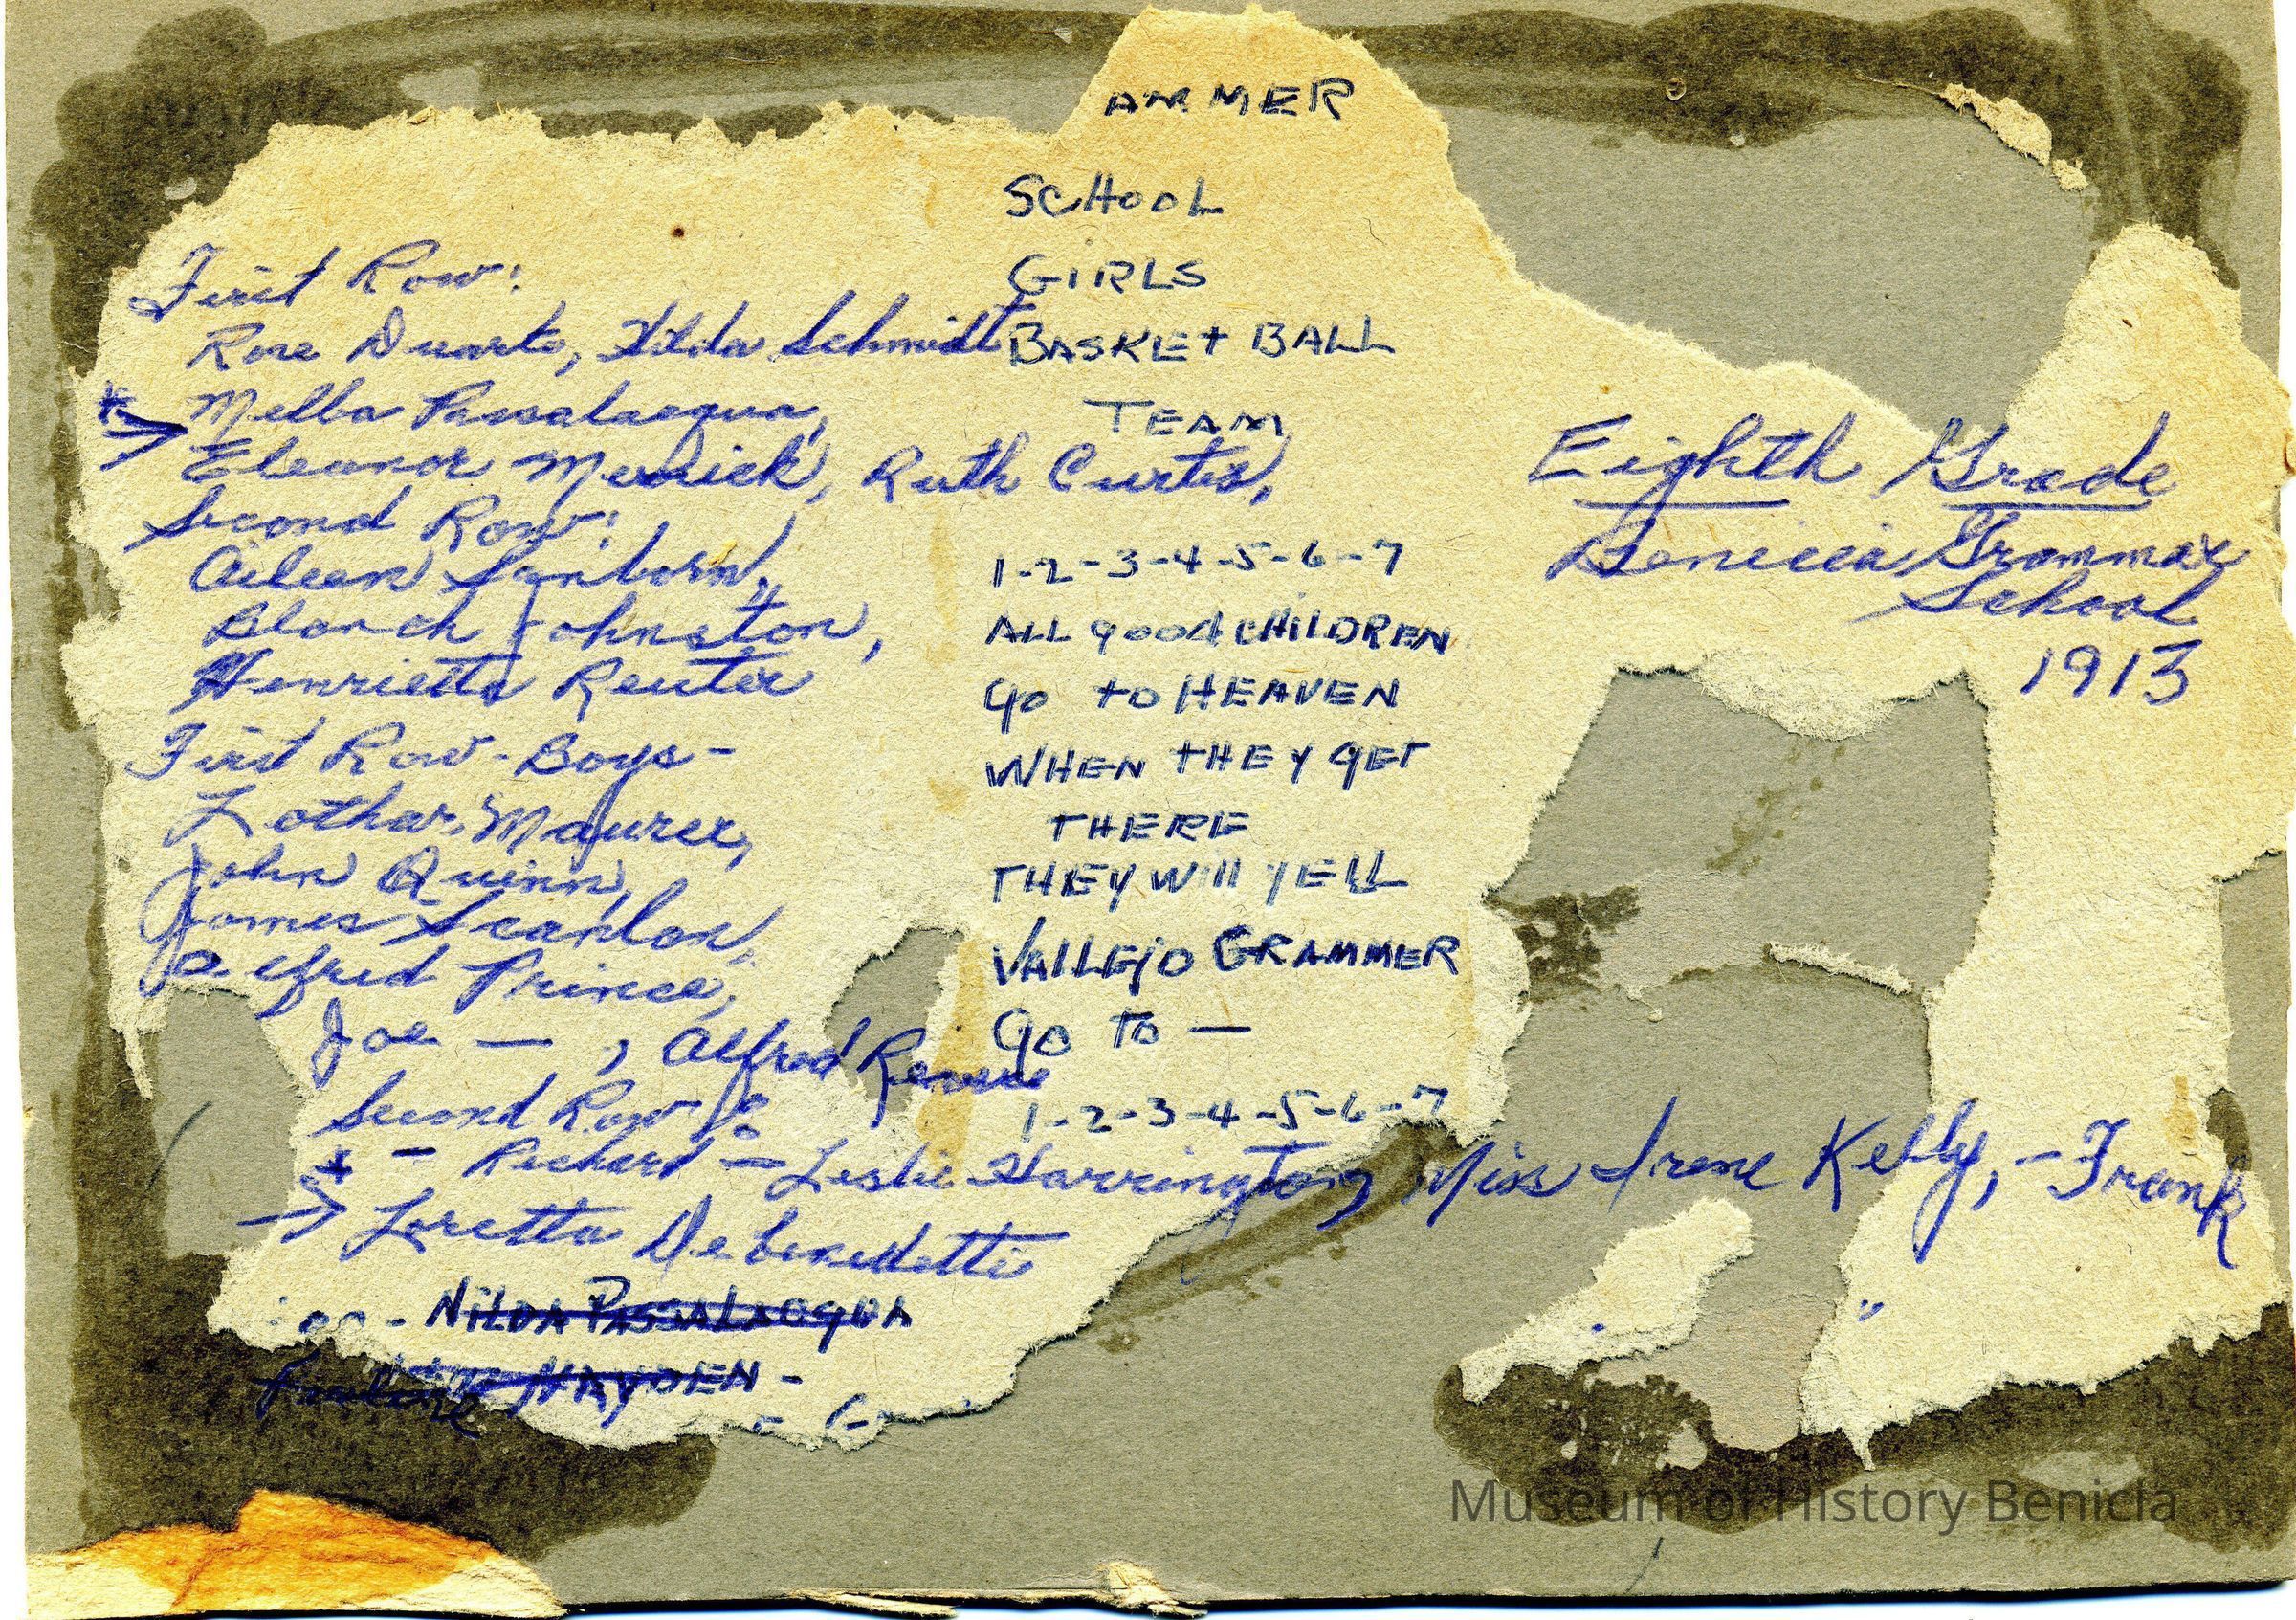 AMMER
SCHOOL
GIRLS
BASKET BALL
TEAM
First Row:
Rose Duarte, Hilda Schmidt
Melba Passalacqua,
Eleanor Merrick, Ruth Curtis,
Second Row:
Aileen Sanborn,
Blanch Johnston,
Henrietta Reuter
First Row - Boys -
Lothar Maurer,
John Quinn,
James Scanlon,
Alfred Prince,
Joe — , Alfred
Second Row:
- Richard - Leslie Harrington, Miss Irene Kelly, - Frank
Loretta De benedetti
NILDA PASSALACQUA
HAYDEN -
1-2-3-4-5-6-7
ALL good CHILDREN
go to HEAVEN
WHEN tHEY get
tHERE
tHEY Will YELL
VALLEjO GRAMMER
go to —
1-2-3-4-5-6-7
Eighth Grade
Benicia Grammar
School
1913
Museum of History Benicia